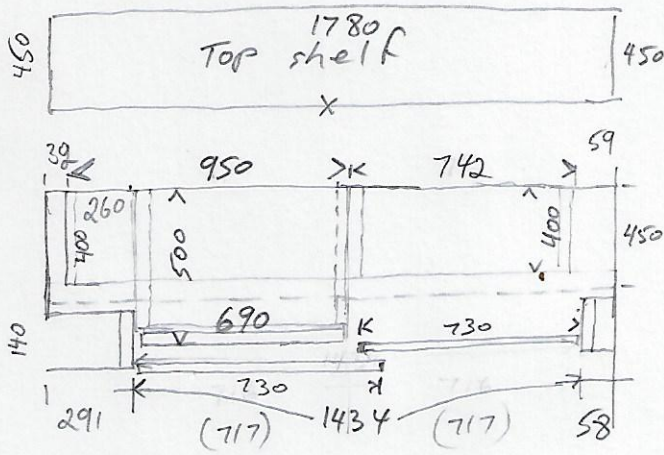 1780
450 Top shelf 450
X
32 950 742 59
260
400 500 400 450
690 730
140
730
291 (717) 1434 (717) 58